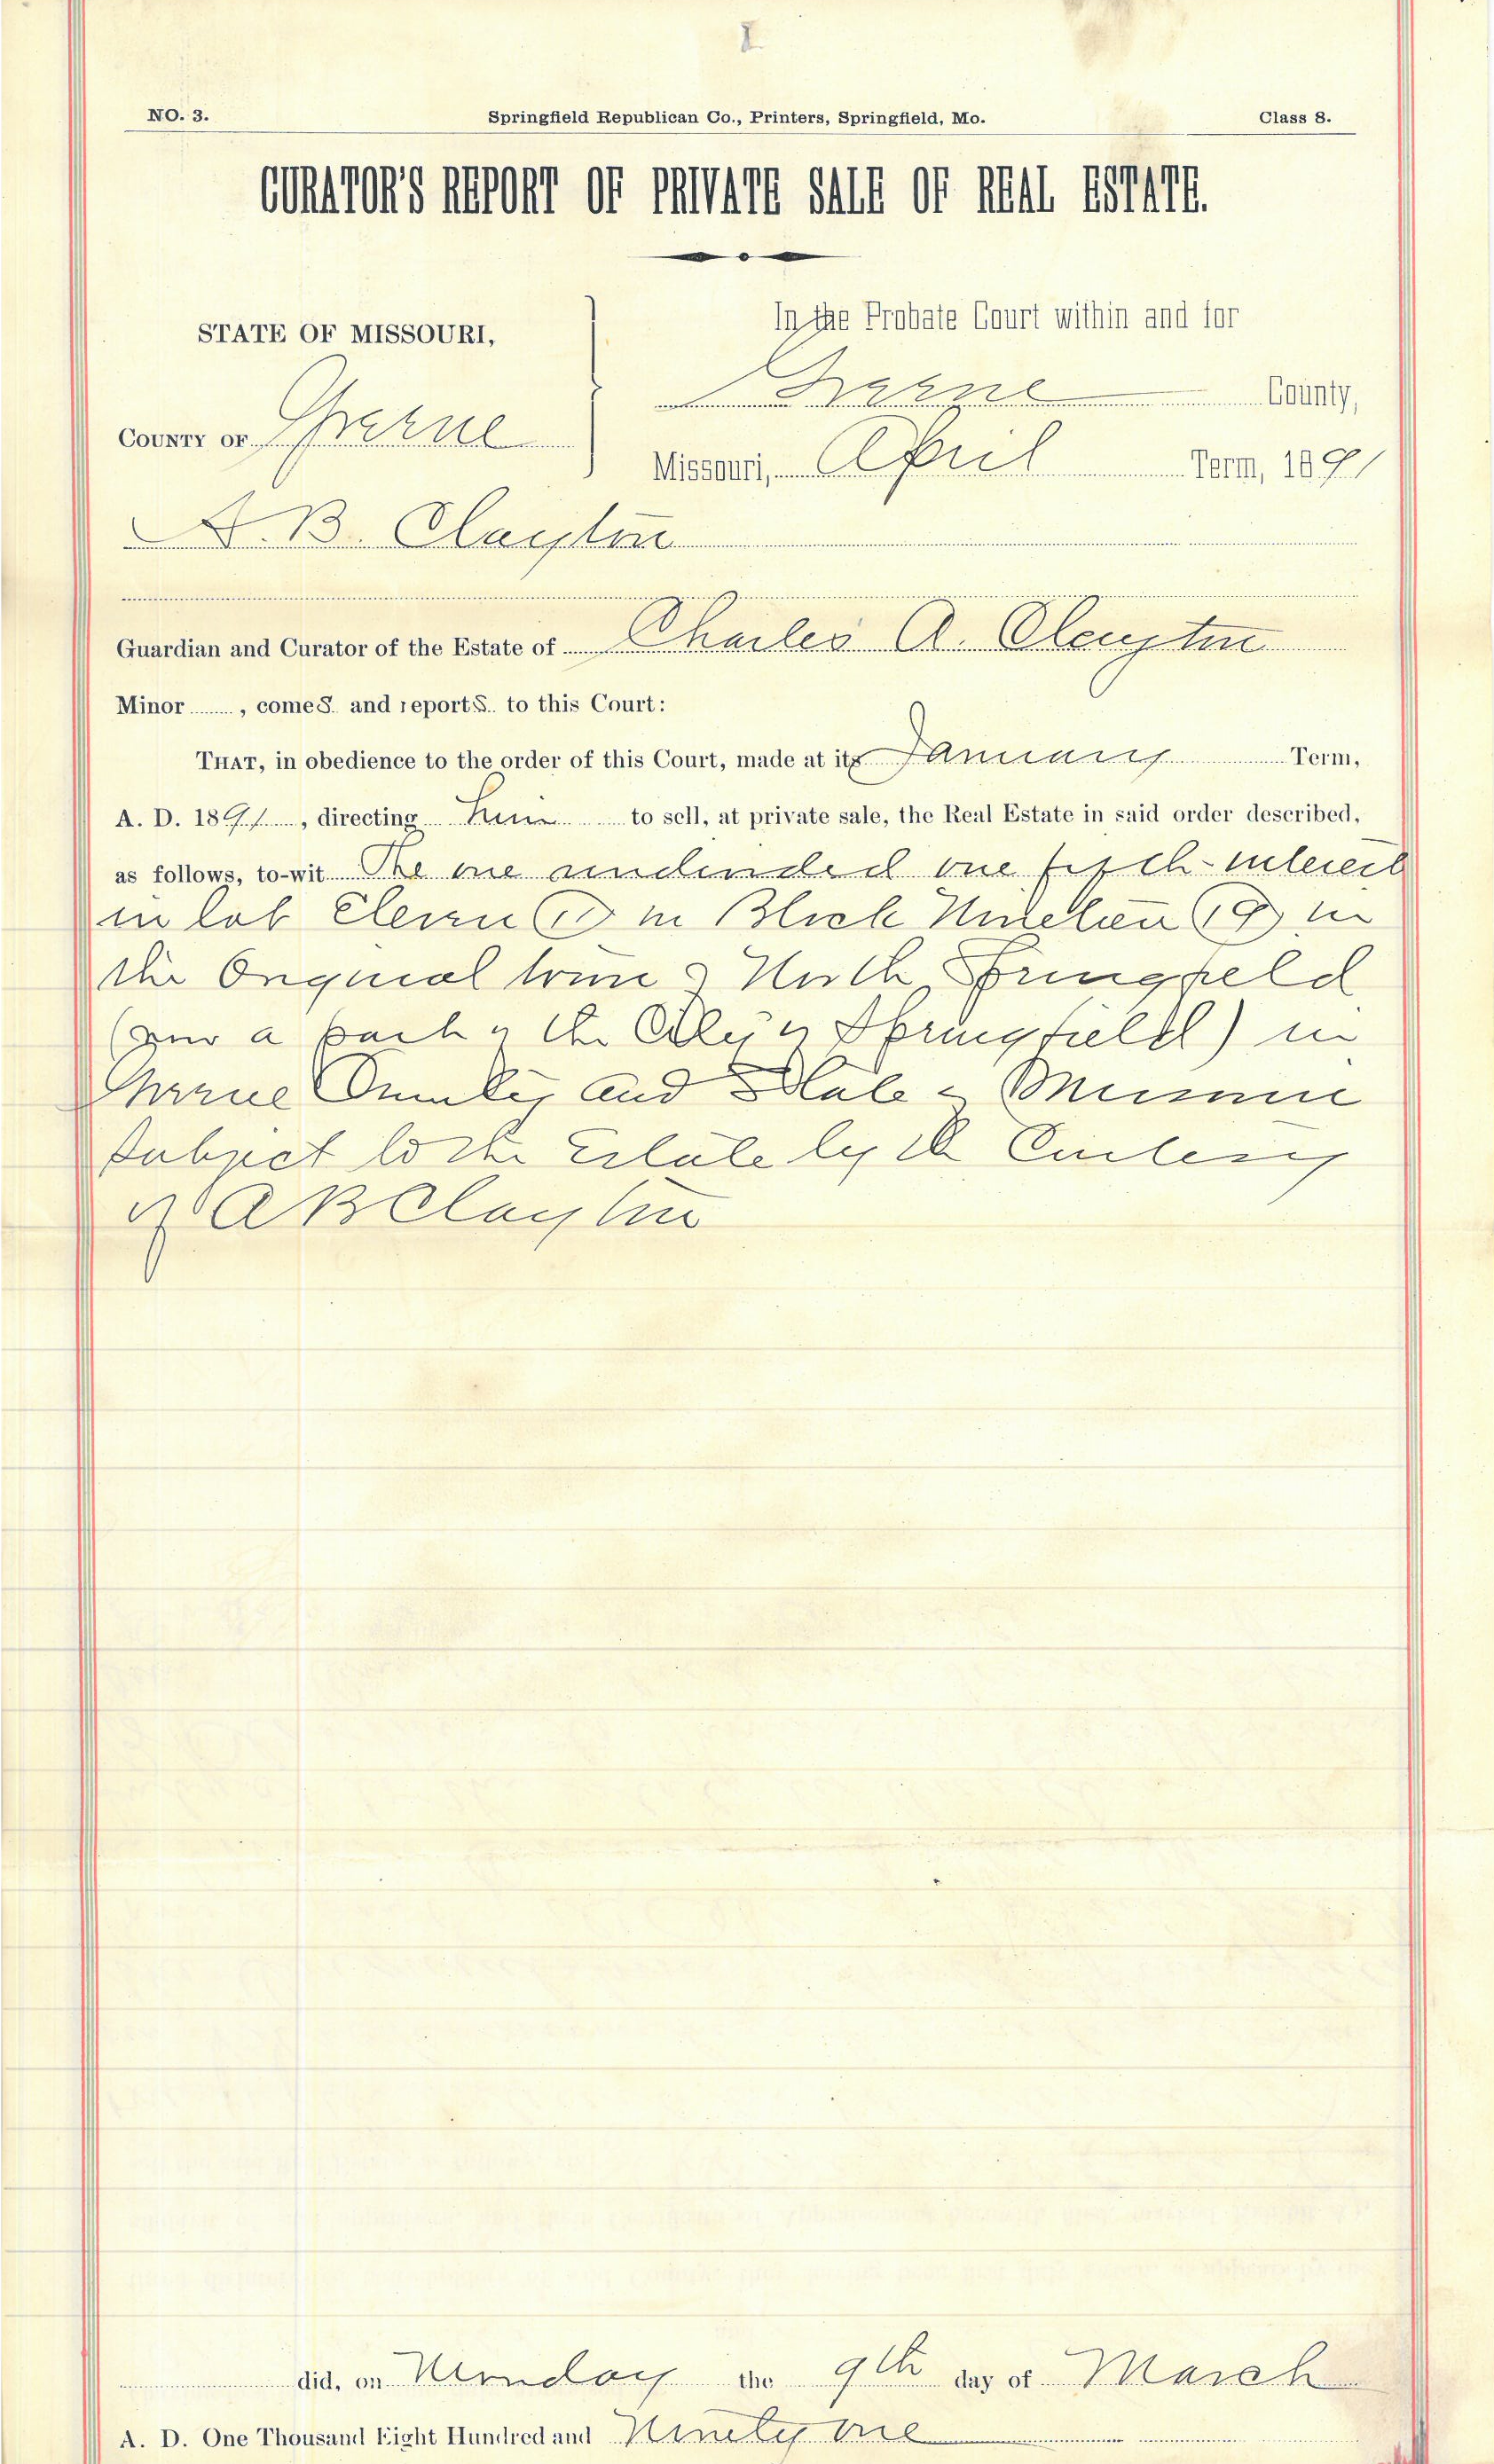 NO. 3. Springfield Republican Co., Printers, Springfield, Mo. Class 8.
CURATOR'S REPORT OF PRIVATE SALE OF REAL ESTATE.
STATE OF MISSOURI,
COUNTY OF Greene
In the Probate Court within and for
Greene County,
Missouri, April Term, 1891
A. B. Clayton
Guardian and Curator of the Estate of Charles A. Clayton
Minor , comes and reports to this Court:
THAT, in obedience to the order of this Court, made at its January Term,
A. D. 1891 , directing him to sell, at private sale, the Real Estate in said order described,
as follows, to-wit The one undivided one fifth interest
in lot Eleven (11) in Block Nineteen (19) in
the Original town of North Springfield
(now a part of the City of Springfield) in
Greene County and State of Missouri
Subject to the Estate by the Curtesy
of A B Clayton
did, on Monday the 9th day of March
A. D. One Thousand Eight Hundred and Ninety one